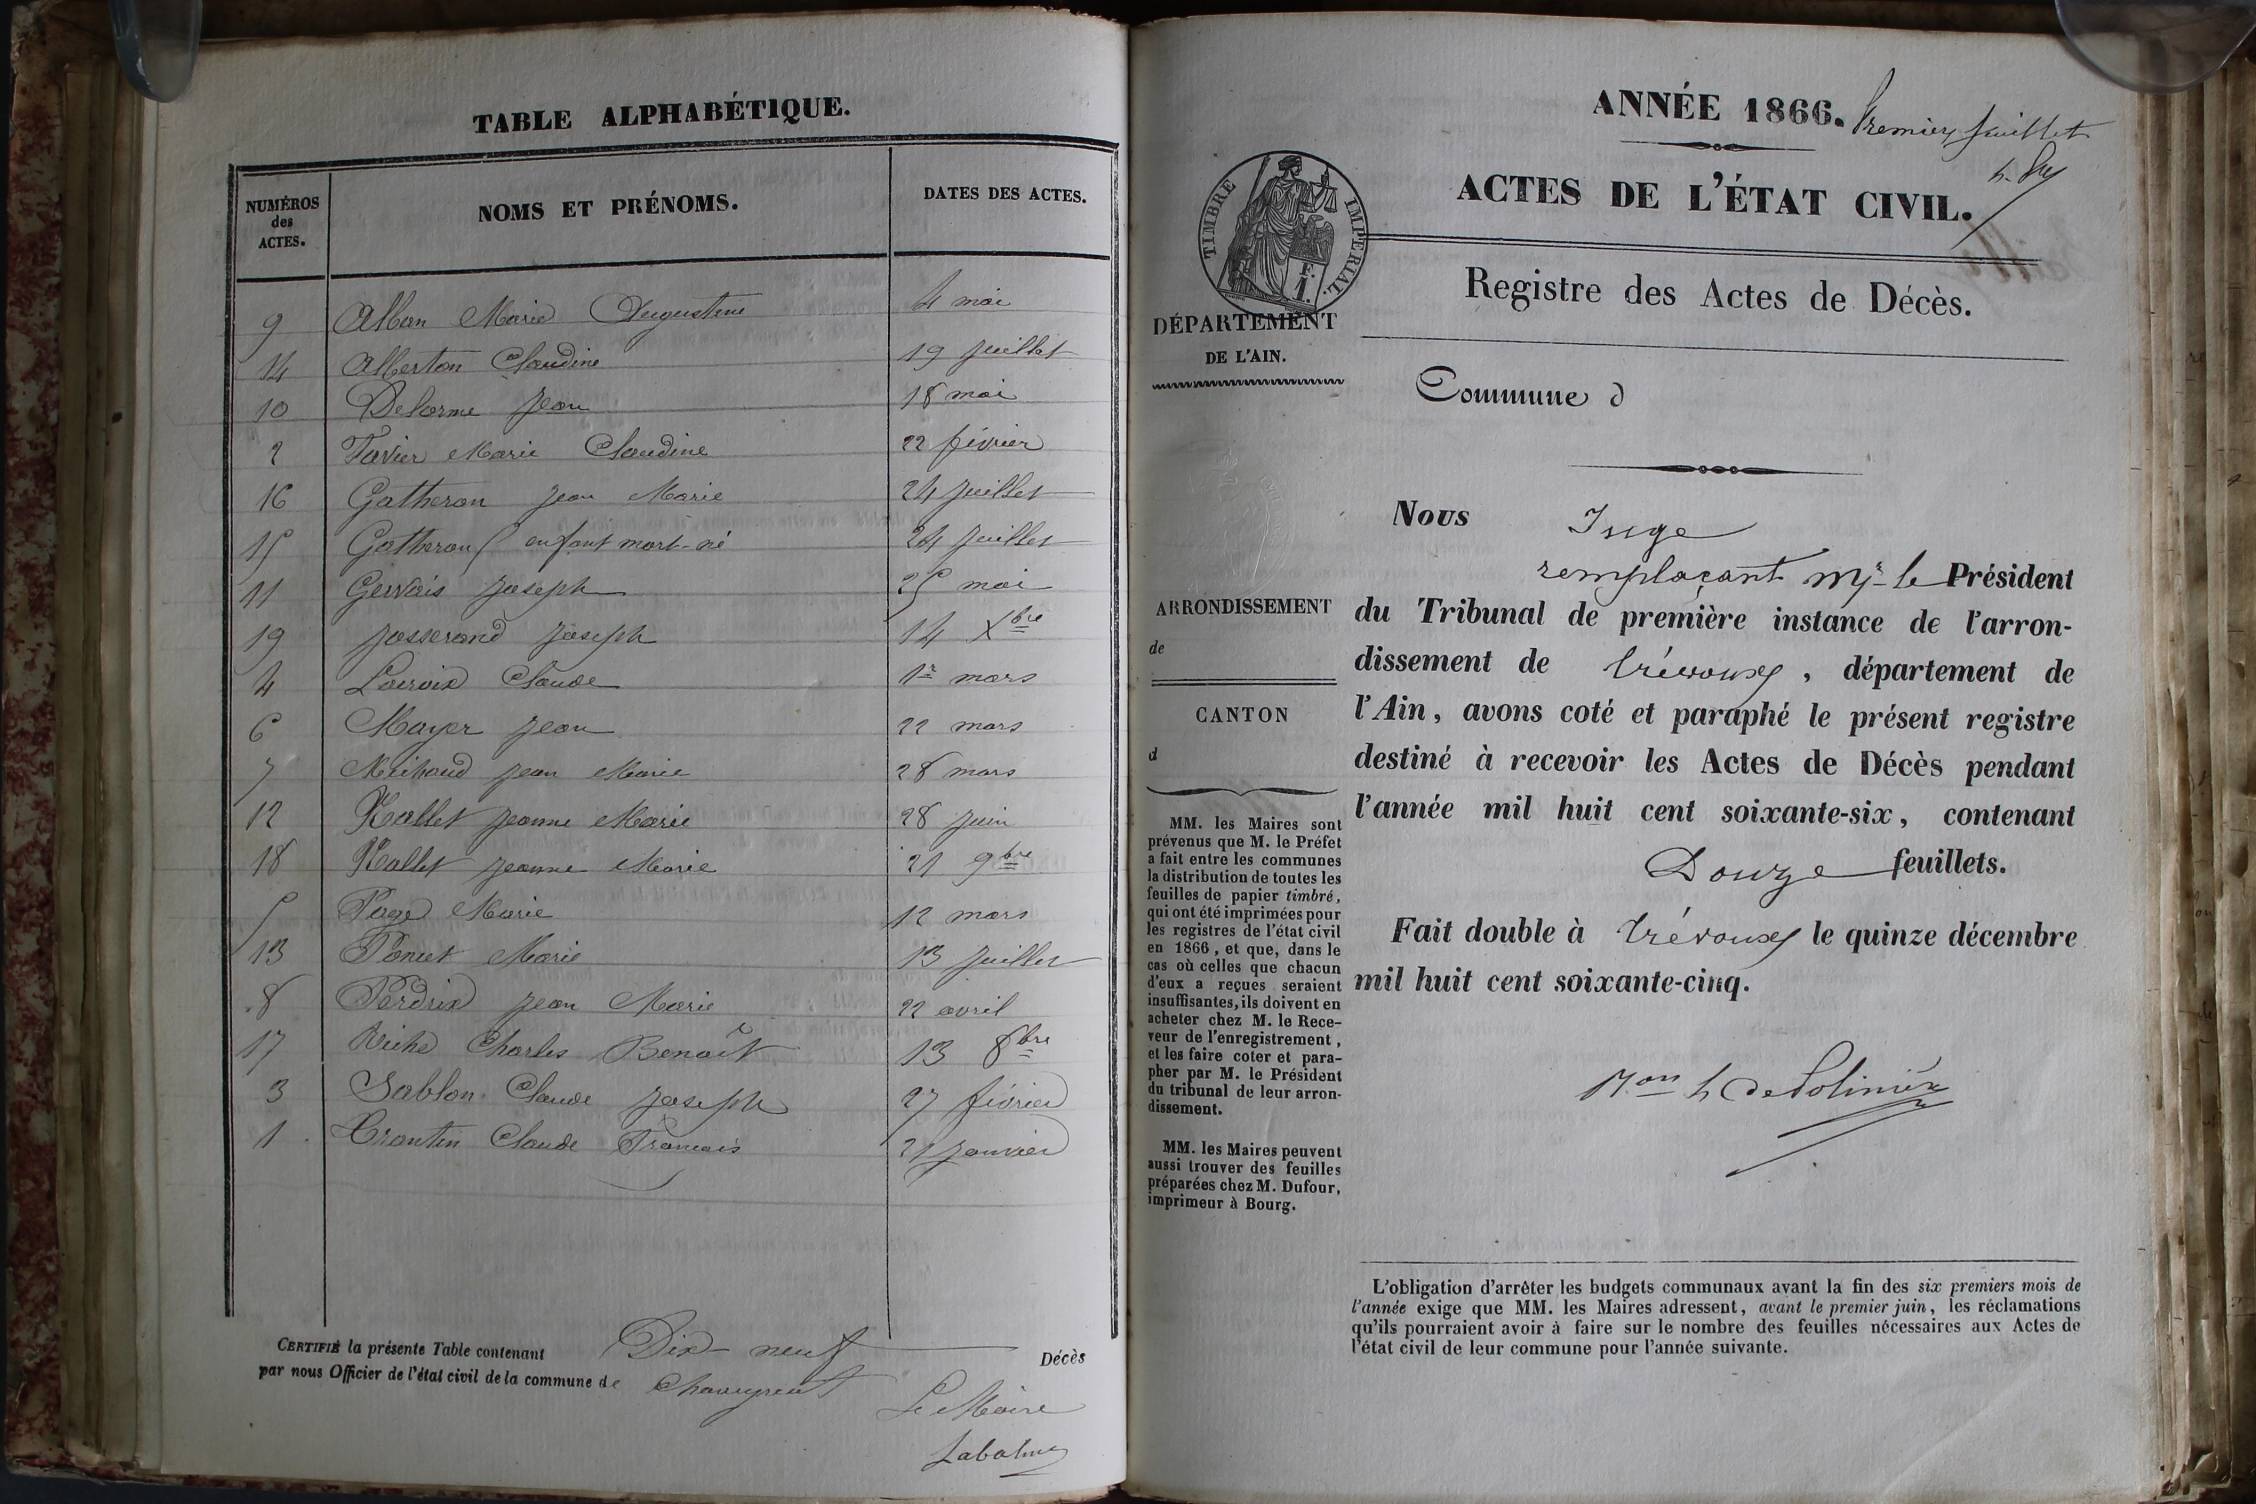 TABLE ALPHABÉTIQUE.
NUMÉROS
des
ACTES.
NOMS ET PRÉNOMS.
DATES DES ACTES.
9 Alban Marie Augustine 4 mai
14 Alberton Claudine 19 juillet
10 Delorme Jean 18 mai
2 Favier Marie Claudine 22 février
16 Gatheron Jean Marie 24 juillet
15 Gatheron enfant mort-né 24 juillet
11 Gervais Joseph 25 mai
19 Josserand Joseph 14 Xbre
4 Lacroix Claude 1r mars
6 Mayer Jean 22 mars
7 Michaud Jean Marie 28 mars
12 Nallet Jeanne Marie 28 juin
18 Nallet Jeanne Marie 21 9bre
5 Page Marie 12 mars
13 Poncet Marie 13 juillet
8 Perdrix Jean Marie 22 avril
17 Riche Charles Benoît 13 8bre
3 Sablon Claude Joseph 27 février
1 Trontin Claude Francois 21 janvier
CERTIFIÉ la présente Table contenant Dix-neuf Décès
par nous Officier de l'état civil de la commune de
Le Maire
ANNÉE 1866.
Premier feuillet
ACTES DE L'ÉTAT CIVIL.
TIMBRE IMPERIAL.
Registre des Actes de Décès.
DÉPARTEMENT
DE L'AIN.
Commune d
ARRONDISSEMENT
de
CANTON
d
MM. les Maires sont
prévenus que M. le Préfet
a fait entre les communes
la distribution de toutes les
feuilles de papier timbré,
qui ont été imprimées pour
les registres de l'état civil
en 1866, et que, dans le
cas où celles que chacun
d'eux a reçues seraient
insuffisantes, ils doivent en
acheter chez M. le Rece-
veur de l'enregistrement,
et les faire coter et para-
pher par M. le Président
du tribunal de leur arron-
dissement.
MM. les Maires peuvent
aussi trouver des feuilles
préparées chez M. Dufour,
imprimeur à Bourg.
Nous Juge
remplaçant Mr le Président
du Tribunal de première instance de l'arron-
dissement de Trévoux, département de
l'Ain, avons coté et paraphé le présent registre
destiné à recevoir les Actes de Décès pendant
l'année mil huit cent soixante-six, contenant
Douze feuillets.
Fait double à Trévoux le quinze décembre
mil huit cent soixante-cinq.
L'obligation d'arrêter les budgets communaux avant la fin des six premiers mois de
l'année exige que MM. les Maires adressent, avant le premier juin, les réclamations
qu'ils pourraient avoir à faire sur le nombre des feuilles nécessaires aux Actes de
l'état civil de leur commune pour l'année suivante.